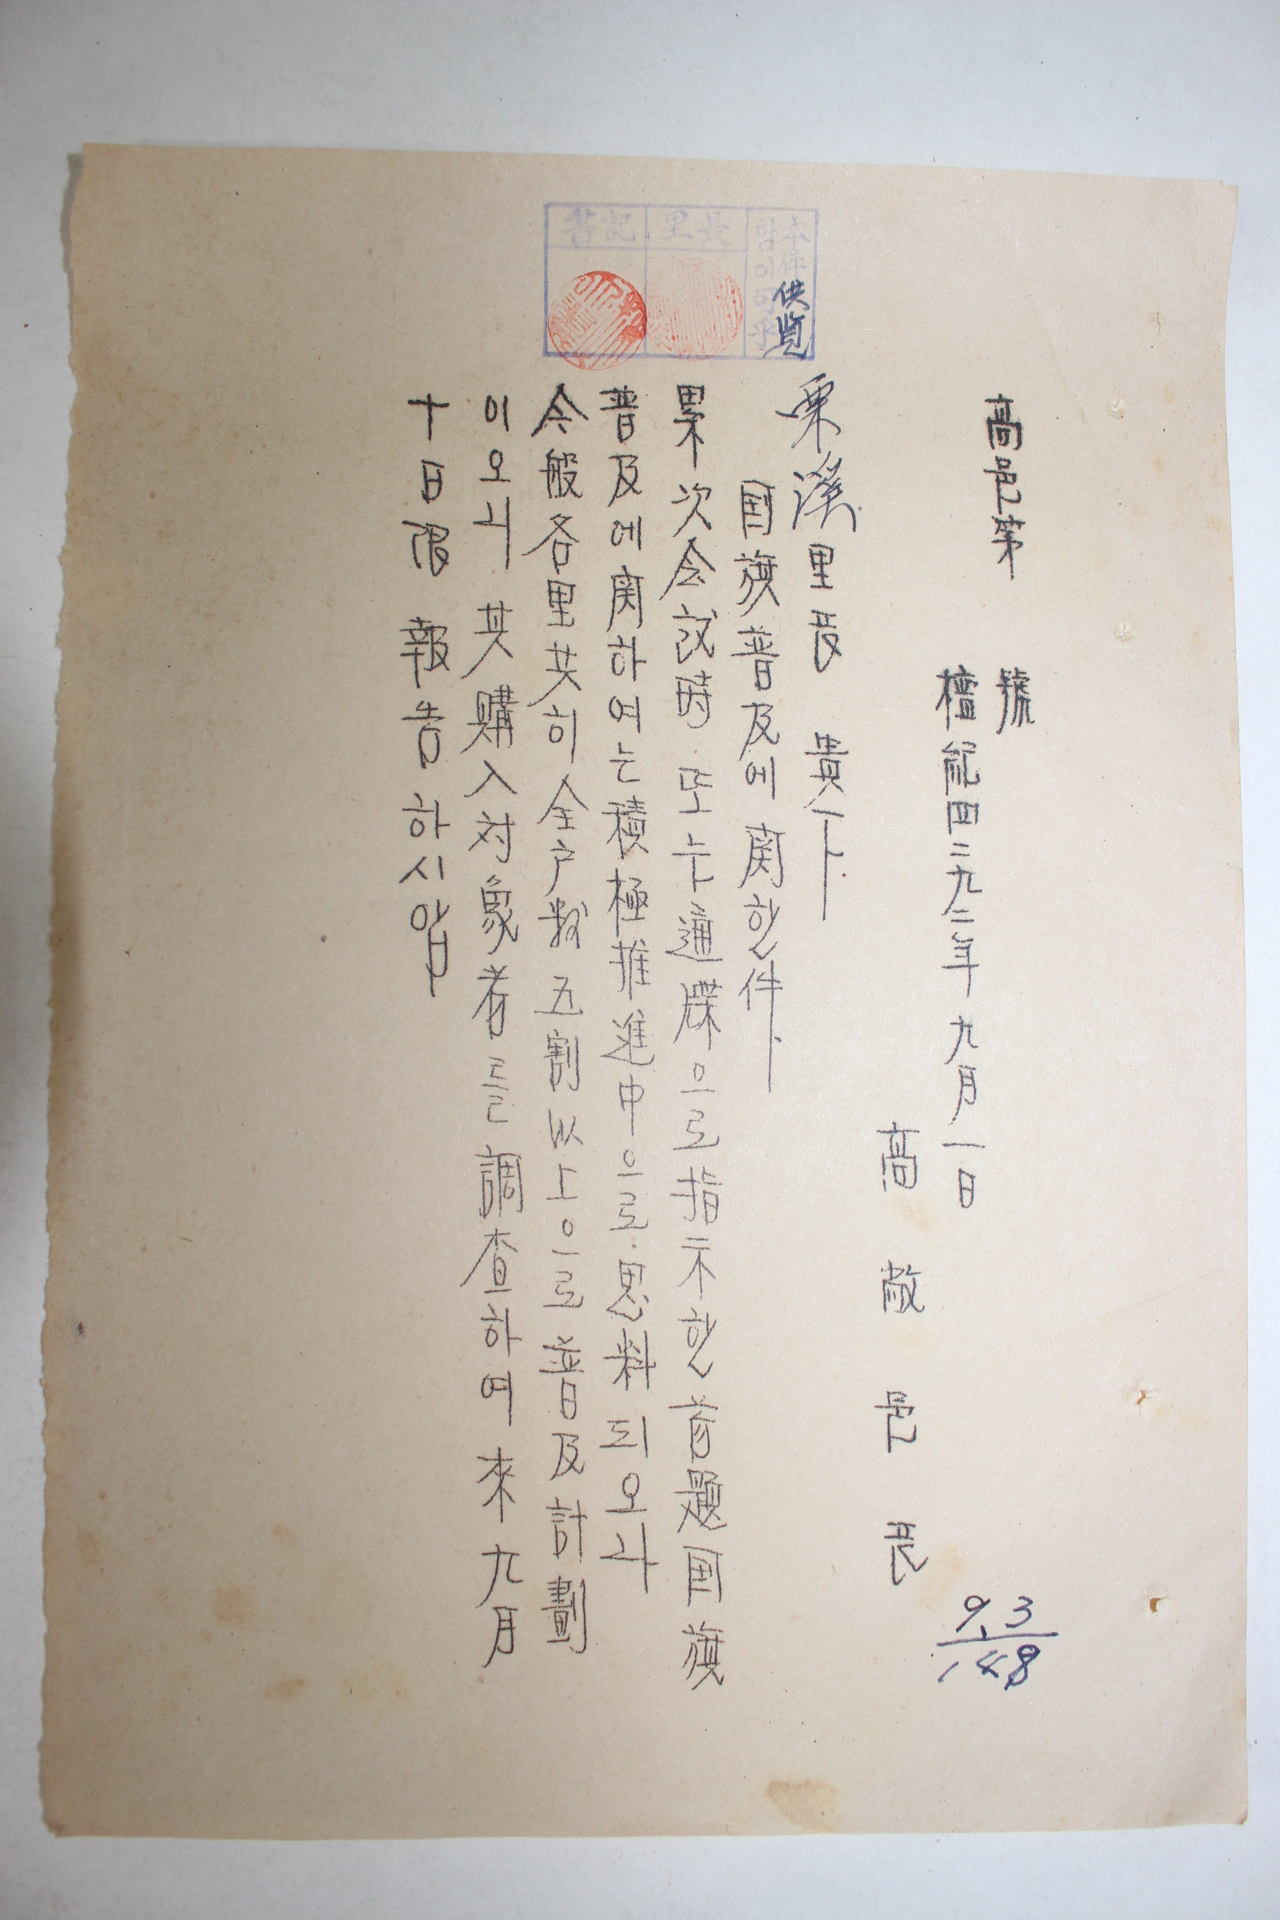 高邑第　　號
檀紀四二九二年 九月 一日
高敞邑長
9.3
148
栗溪里長 貴下
国旗普及에 関한 件
累次会議時 또는 通牒으로 指示한 首題国旗
普及에 関하여는 積極推進中으로 思料되오나
今般各里共히 全户数 五割以上으로 普及計劃
이오니 其購入対象者를 調査하여 來九月
十日限 報告하시압
本件
供覧
함이可乎
里長
書記